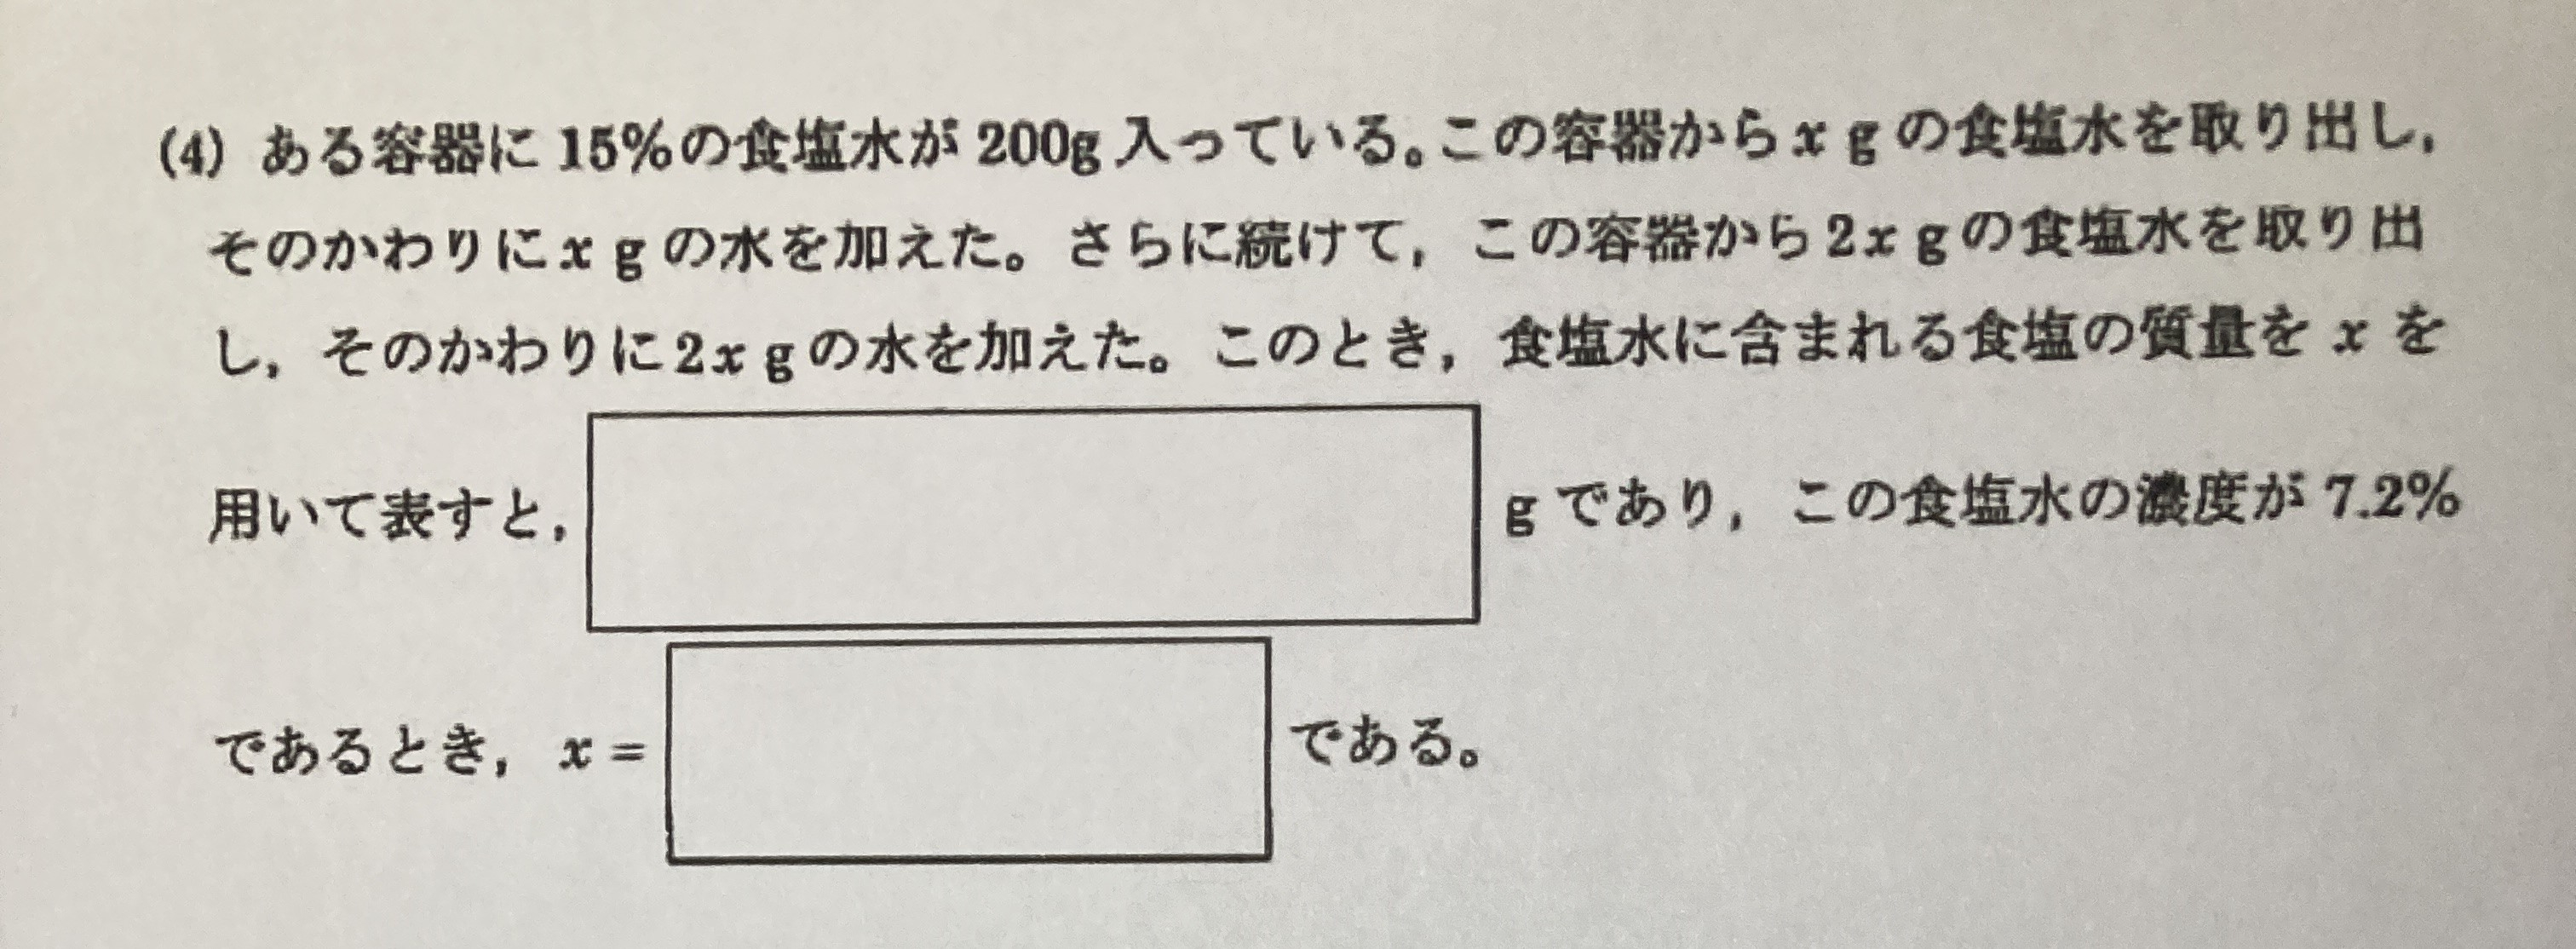 (4) ある容器に 15%の食塩水が 200g 入っている。この容器から x g の食塩水を取り出し,
そのかわりに x g の水を加えた。さらに続けて, この容器から 2x g の食塩水を取り出
し, そのかわりに 2x g の水を加えた。このとき, 食塩水に含まれる食塩の質量を x を
用いて表すと, g であり, この食塩水の濃度が 7.2%
であるとき, x = である。